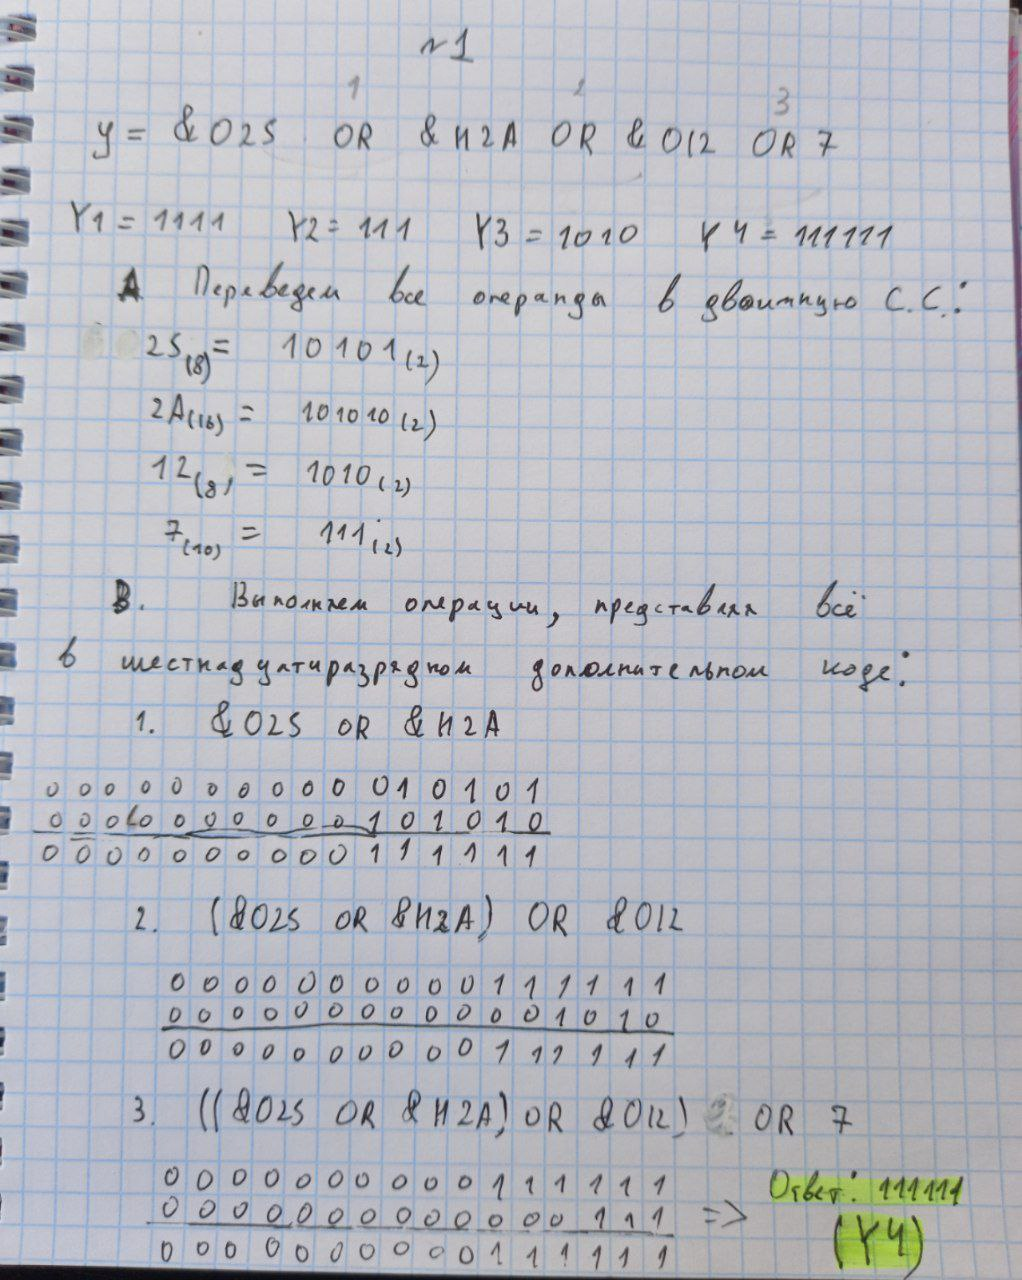 №1
1 2 3
y = &O25 OR &H2A OR &O12 OR 7
Y1 = 1111 Y2 = 111 Y3 = 1010 Y4 = 111111
A Переведем все операнды в двоичную С.С.:
25(8) = 10101(2)
2A(16) = 101010(2)
12(8) = 1010(2)
7(10) = 111(2)
B. Выполняем операции, представляя всё
в шестнадцатиразрядном дополнительном коде:
1. &O25 OR &H2A
0 0 0 0 0 0 0 0 0 0 0 1 0 1 0 1
0 0 0 0 0 0 0 0 0 0 1 0 1 0 1 0
0 0 0 0 0 0 0 0 0 0 1 1 1 1 1 1
2. (&O25 OR &H2A) OR &O12
0 0 0 0 0 0 0 0 0 0 1 1 1 1 1 1
0 0 0 0 0 0 0 0 0 0 0 0 1 0 1 0
0 0 0 0 0 0 0 0 0 0 1 1 1 1 1 1
3. ((&O25 OR &H2A) OR &O12) OR 7
0 0 0 0 0 0 0 0 0 0 1 1 1 1 1 1
0 0 0 0 0 0 0 0 0 0 0 0 0 1 1 1
0 0 0 0 0 0 0 0 0 0 1 1 1 1 1 1
=> Ответ: 111111
(Y4)